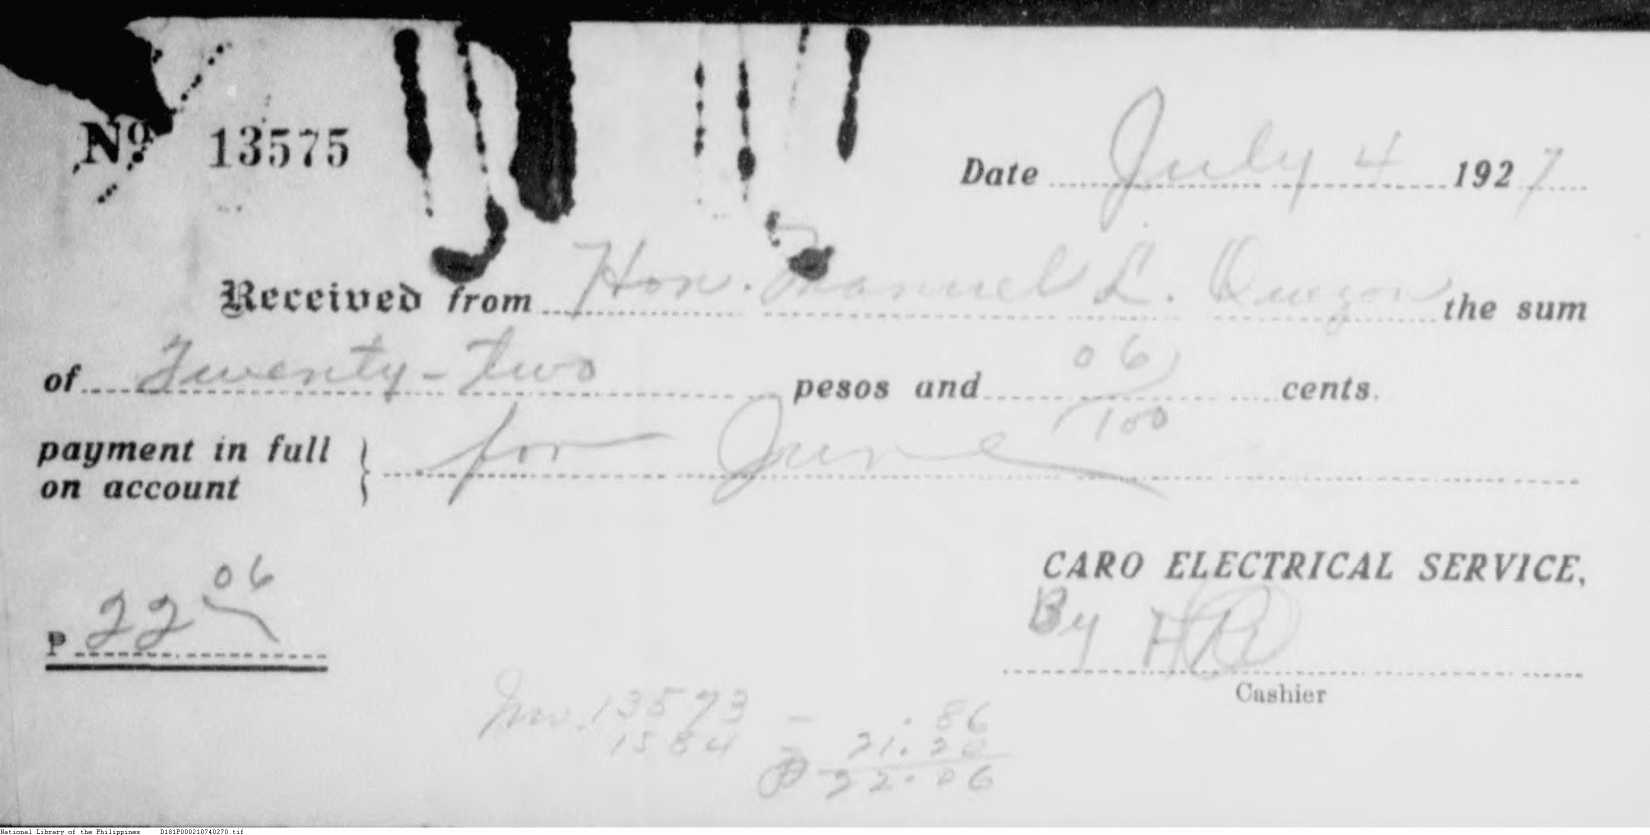 No. 13575
Date July 4 1927
Received from Hon. Manuel L. Quezon the sum
of Twenty-two pesos and 06/100 cents.
payment in full
on account } for June
₱ 22 06
CARO ELECTRICAL SERVICE,
By
Cashier
Inv. 13573 - .86
1584 21.20
₱ 22.06
National Library of the Philippines D181P000210740270.tif